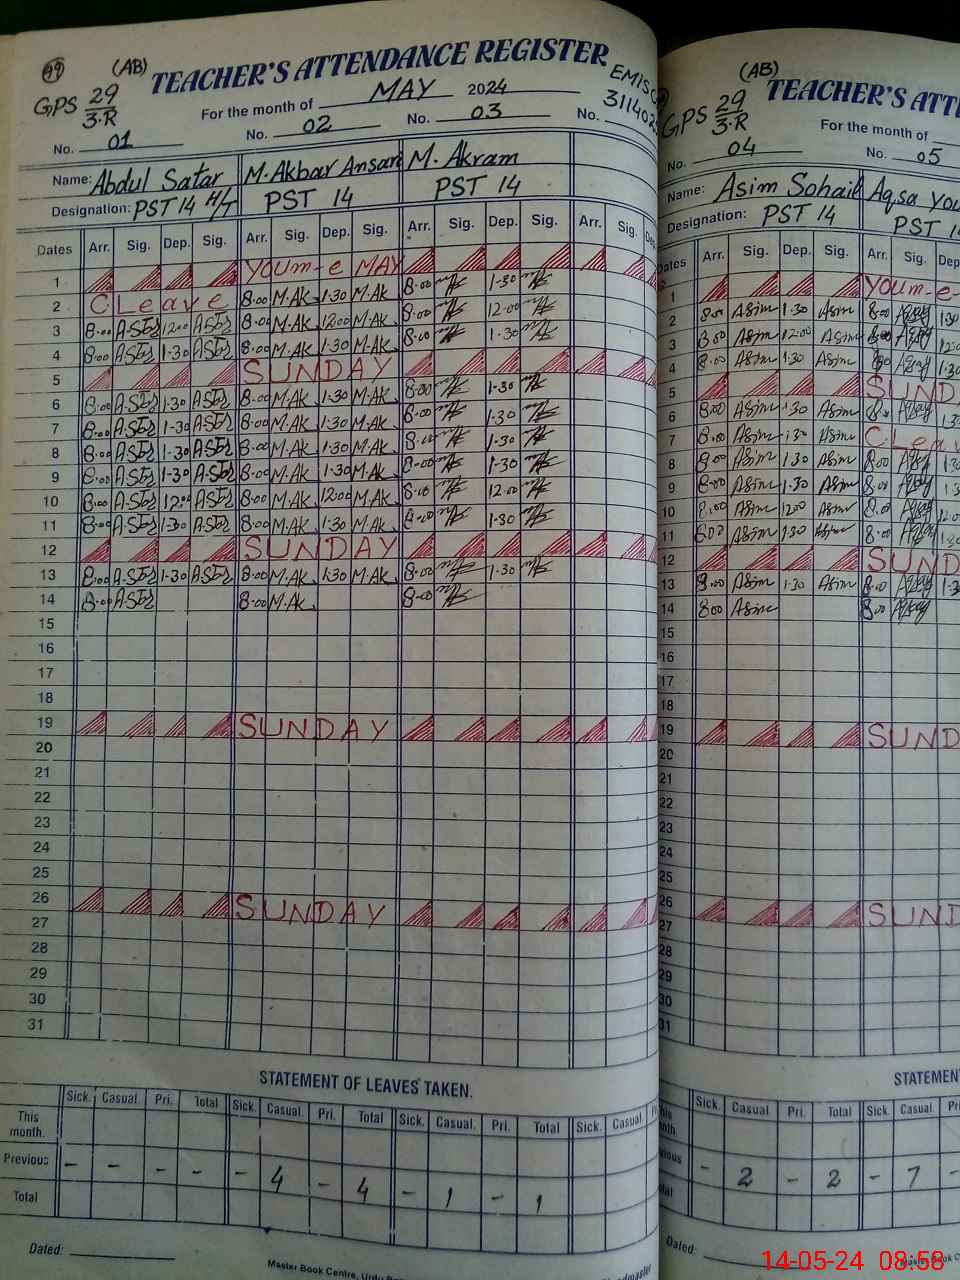 99 (AB) TEACHER'S ATTENDANCE REGISTER
GPS 29/3.R For the month of MAY 2024 EMISC
No. 01 No. 02 No. 03 No. 311402
Name: Abdul Satar M. Akbar Ansari M. Akram
Designation: PST 14 H/T PST 14 PST 14
Dates Arr. Sig. Dep. Sig. Arr. Sig. Dep. Sig. Arr. Sig. Dep. Sig. Arr. Sig. Dep.
1 Youm-e MAY
2 C Leave 8.00 M.AK 1.30 M.AK 8.00 1.30
3 8.00 12.00 8.00 M.AK 12.00 M.AK 8.00 12.00
4 8.00 1.30 8.00 M.AK 1.30 M.AK 8.00 1.30
5 SUNDAY
6 8.00 1.30 8.00 M.AK 1.30 M.AK 8.00 1.30
7 8.00 1.30 8.00 M.AK 1.30 M.AK 8.00 1.30
8 8.00 1.30 8.00 M.AK 1.30 M.AK 8.00 1.30
9 8.00 1.30 8.00 M.AK 1.30 M.AK 8.00 1.30
10 8.00 12.00 8.00 M.AK 12.00 M.AK 8.00 12.00
11 8.00 1.30 8.00 M.AK 1.30 M.AK 8.00 1.30
12 SUNDAY
13 8.00 1.30 8.00 M.AK 1.30 M.AK 8.00 1.30
14 8.00 8.00 M.AK 8.00
15
16
17
18
19 SUNDAY
20
21
22
23
24
25
26 SUNDAY
27
28
29
30
31
STATEMENT OF LEAVES TAKEN.
Sick. Casual. Pri. Total Sick. Casual. Pri. Total Sick. Casual. Pri. Total Sick. Casual.
This month.
Previous - - - - - 4 - 4 - 1 - 1
Total
Dated:
Master Book Centre, Urdu
(AB) TEACHER'S ATT
GPS 29/3.R For the month of
No. 04 No. 05
Name: Asim Sohail Aqsa You
Designation: PST 14 PST 1
Dates Arr. Sig. Dep. Sig. Arr. Sig. Dep
1 Youm-e-
2 8.00 Asim 1.30 Asim 8.00 1.30
3 8.00 Asim 12.00 Asim 8.00
4 8.00 Asim 1.30 Asim 8.00 1.30
5 SUND
6 8.00 Asim 1.30 Asim 8.00
7 8.00 Asim 1.30 Asim C.Leav
8 8.00 Asim 1.30 Asim 8.00
9 8.00 Asim 1.30 Asim 8.00
10 8.00 Asim 12.00 Asim 8.00
11 8.00 Asim 1.30 Asim 8.00
12 SUND
13 8.00 Asim 1.30 Asim 8.00
14 8.00 Asim 8.00
15
16
17
18
19 SUND
20
21
22
23
24
25
26 SUND
27
28
29
30
31
STATEMEN
Sick. Casual. Pri. Total Sick. Casual. Pri
- 2 - 2 - 7 -
Dated:
Master Book C
14-05-24 08:58